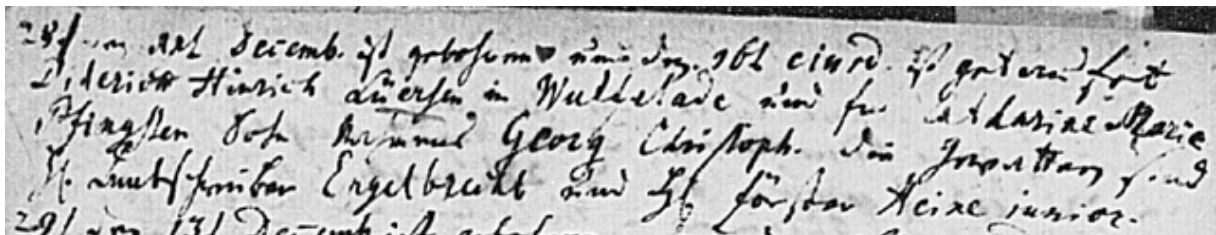 28, den Decemb. ist gebohren und den eiusd. ist getauft
Diderich Hinrich Lüersen in Wulfelade und fr. Catharine Marie
Pfingsten Sohn Nahmens Georg Christoph. die Gevattern sind
H. Ambtschreiber Engelbrecht und H. förster Heine junior.
29, den Decemb. ist gebohren